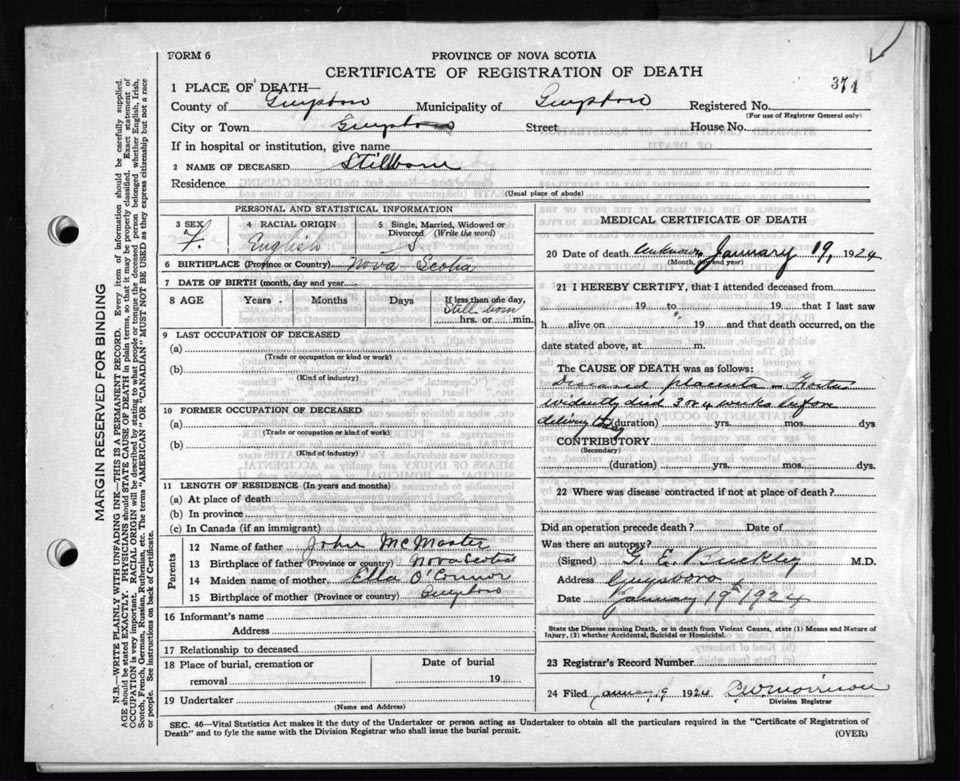 FORM 6
PROVINCE OF NOVA SCOTIA
CERTIFICATE OF REGISTRATION OF DEATH
371
1 PLACE OF DEATH—
County of Guysboro Municipality of Guysboro Registered No.
(For use of Registrar General only)
City or Town Guysboro Street House No.
If in hospital or institution, give name
2 NAME OF DECEASED Stillborn
Residence
(Usual place of abode)
PERSONAL AND STATISTICAL INFORMATION
3 SEX 4 RACIAL ORIGIN 5 Single, Married, Widowed or Divorced (Write the word)
F. English S.
6 BIRTHPLACE (Province or Country) Nova Scotia
7 DATE OF BIRTH (month, day and year)
8 AGE Years Months Days If less than one day,
Still born
hrs. or min.
9 LAST OCCUPATION OF DECEASED
(a)
(Trade or occupation or kind of work)
(b)
(Kind of industry)
10 FORMER OCCUPATION OF DECEASED
(a)
(Trade or occupation or kind of work)
(b)
(Kind of industry)
11 LENGTH OF RESIDENCE (In years and months)
(a) At place of death
(b) In province
(c) In Canada (if an immigrant)
Parents
12 Name of father John McMaster
13 Birthplace of father (Province or country) Nova Scotia
14 Maiden name of mother Ella O'Connor
15 Birthplace of mother (Province or country) Guysboro
16 Informant's name
Address
17 Relationship to deceased
18 Place of burial, cremation or removal Date of burial
19
19 Undertaker
(Name and Address)
MEDICAL CERTIFICATE OF DEATH
20 Date of death unknown January 19, 1924
(Month, day and year)
21 I HEREBY CERTIFY, that I attended deceased from
19 to 19 that I last saw
h alive on 19 and that death occurred, on the
date stated above, at m.
The CAUSE OF DEATH was as follows:
Diseased placenta – Foetus
evidently died 3 or 4 weeks before
delivery today (duration) yrs. mos. dys
CONTRIBUTORY
(Secondary)
(duration) yrs. mos. dys.
22 Where was disease contracted if not at place of death?
Did an operation precede death? Date of
Was there an autopsy?
(Signed) G. E. Buckley M.D.
Address Guysboro
Date January 19th 1924
State the Disease causing Death, or in death from Violent Causes, state (1) Means and Nature of Injury, (2) whether Accidental, Suicidal or Homicidal.
23 Registrar's Record Number
24 Filed January 19 1924 Morrison
Division Registrar
SEC. 46—Vital Statistics Act makes it the duty of the Undertaker or person acting as Undertaker to obtain all the particulars required in the "Certificate of Registration of
Death" and to fyle the same with the Division Registrar who shall issue the burial permit.
(OVER)
MARGIN RESERVED FOR BINDING
N.B.—WRITE PLAINLY WITH UNFADING INK—THIS IS A PERMANENT RECORD. Every item of information should be carefully supplied.
AGE should be stated EXACTLY. PHYSICIANS should STATE CAUSE OF DEATH in plain terms, so that it may be properly classified. Exact statement of
OCCUPATION is very important. RACIAL ORIGIN will be described by stating to what people or tongue the deceased person belonged whether English, Irish,
Scotch, French, German, Russian, Ruthenian, etc. The terms "AMERICAN" or "CANADIAN" MUST NOT BE USED as they express citizenship but not a race
or people. See instructions on back of Certificate.